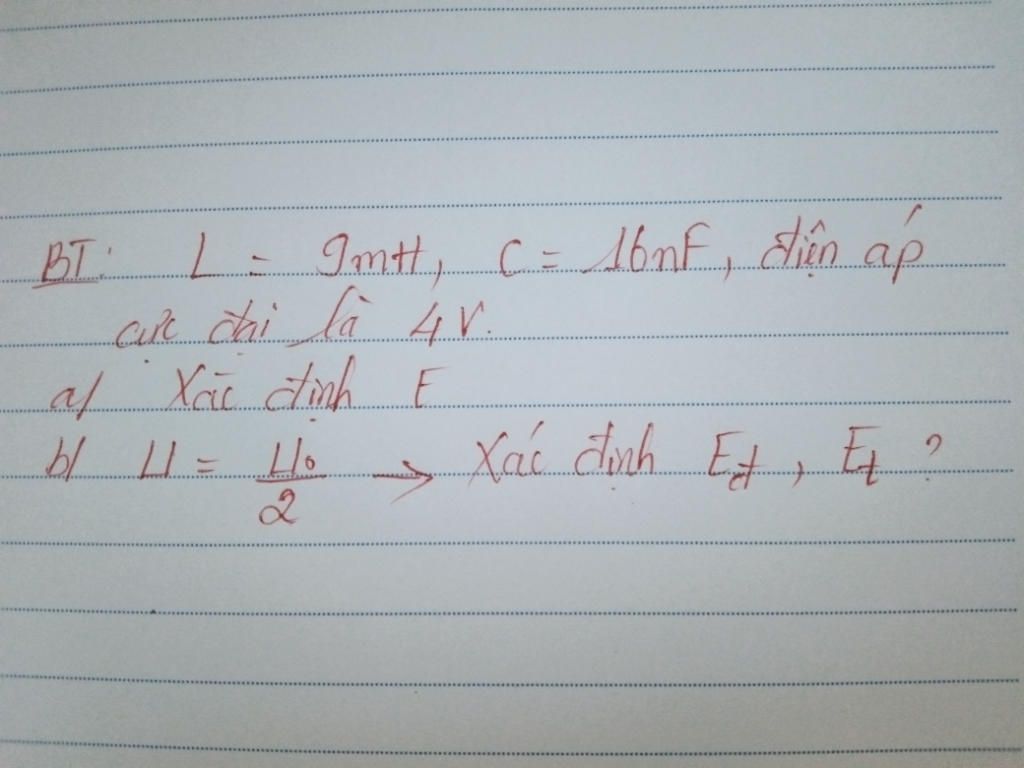 BT: L = 9mH, C = 16nF, điện áp
cực đại là 4V.
a/ Xác định E
b/ U = U₀/2 → Xác định Eđ, Et ?